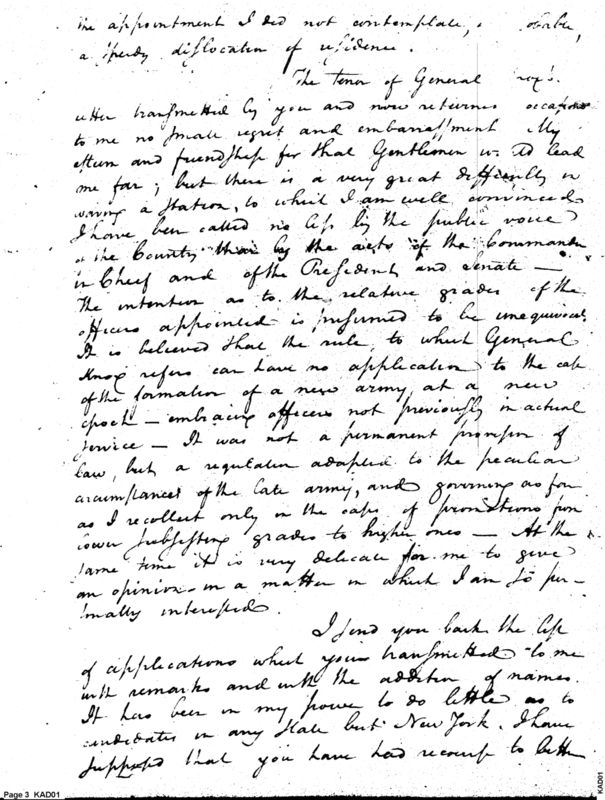 the appointment I did not contemplate,
a speedy dislocation of residence.
The tenor of General
letter transmitted by you and now returned occasions
to me no small regret and embarrassment My
esteem and friendship for that Gentleman would lead
me far; but there is a very great difficulty in
waving a station, to which I am well convinced
I have been called no less by the public voice
of the Country than by the acts of the Commander
in Chief and of the President and Senate —
The intention as to the relative grades of the
officers appointed is presumed to be unequivocal.
It is believed that the rule, to which General
Knox refers can have no application to the case
of the formation of a new army, at a new
epoch — embracing officers not previously in actual
service — It was not a permanent provision of
law, but a regulation adapted to the peculiar
circumstances of the late army, and governing as far
as I recollect only in the case of promotions from
lower subsisting grades to higher ones — At the
same time it is very delicate for me to give
an opinion in a matter in which I am so per-
sonally interested.
I send you back the list
of applications which you transmitted to me
with remarks and with the addition of names.
It has been in my power to do little as to
candidates in any State but New York. I have
supposed that you have had recourse to better
Page 3 KAD01
KAD01